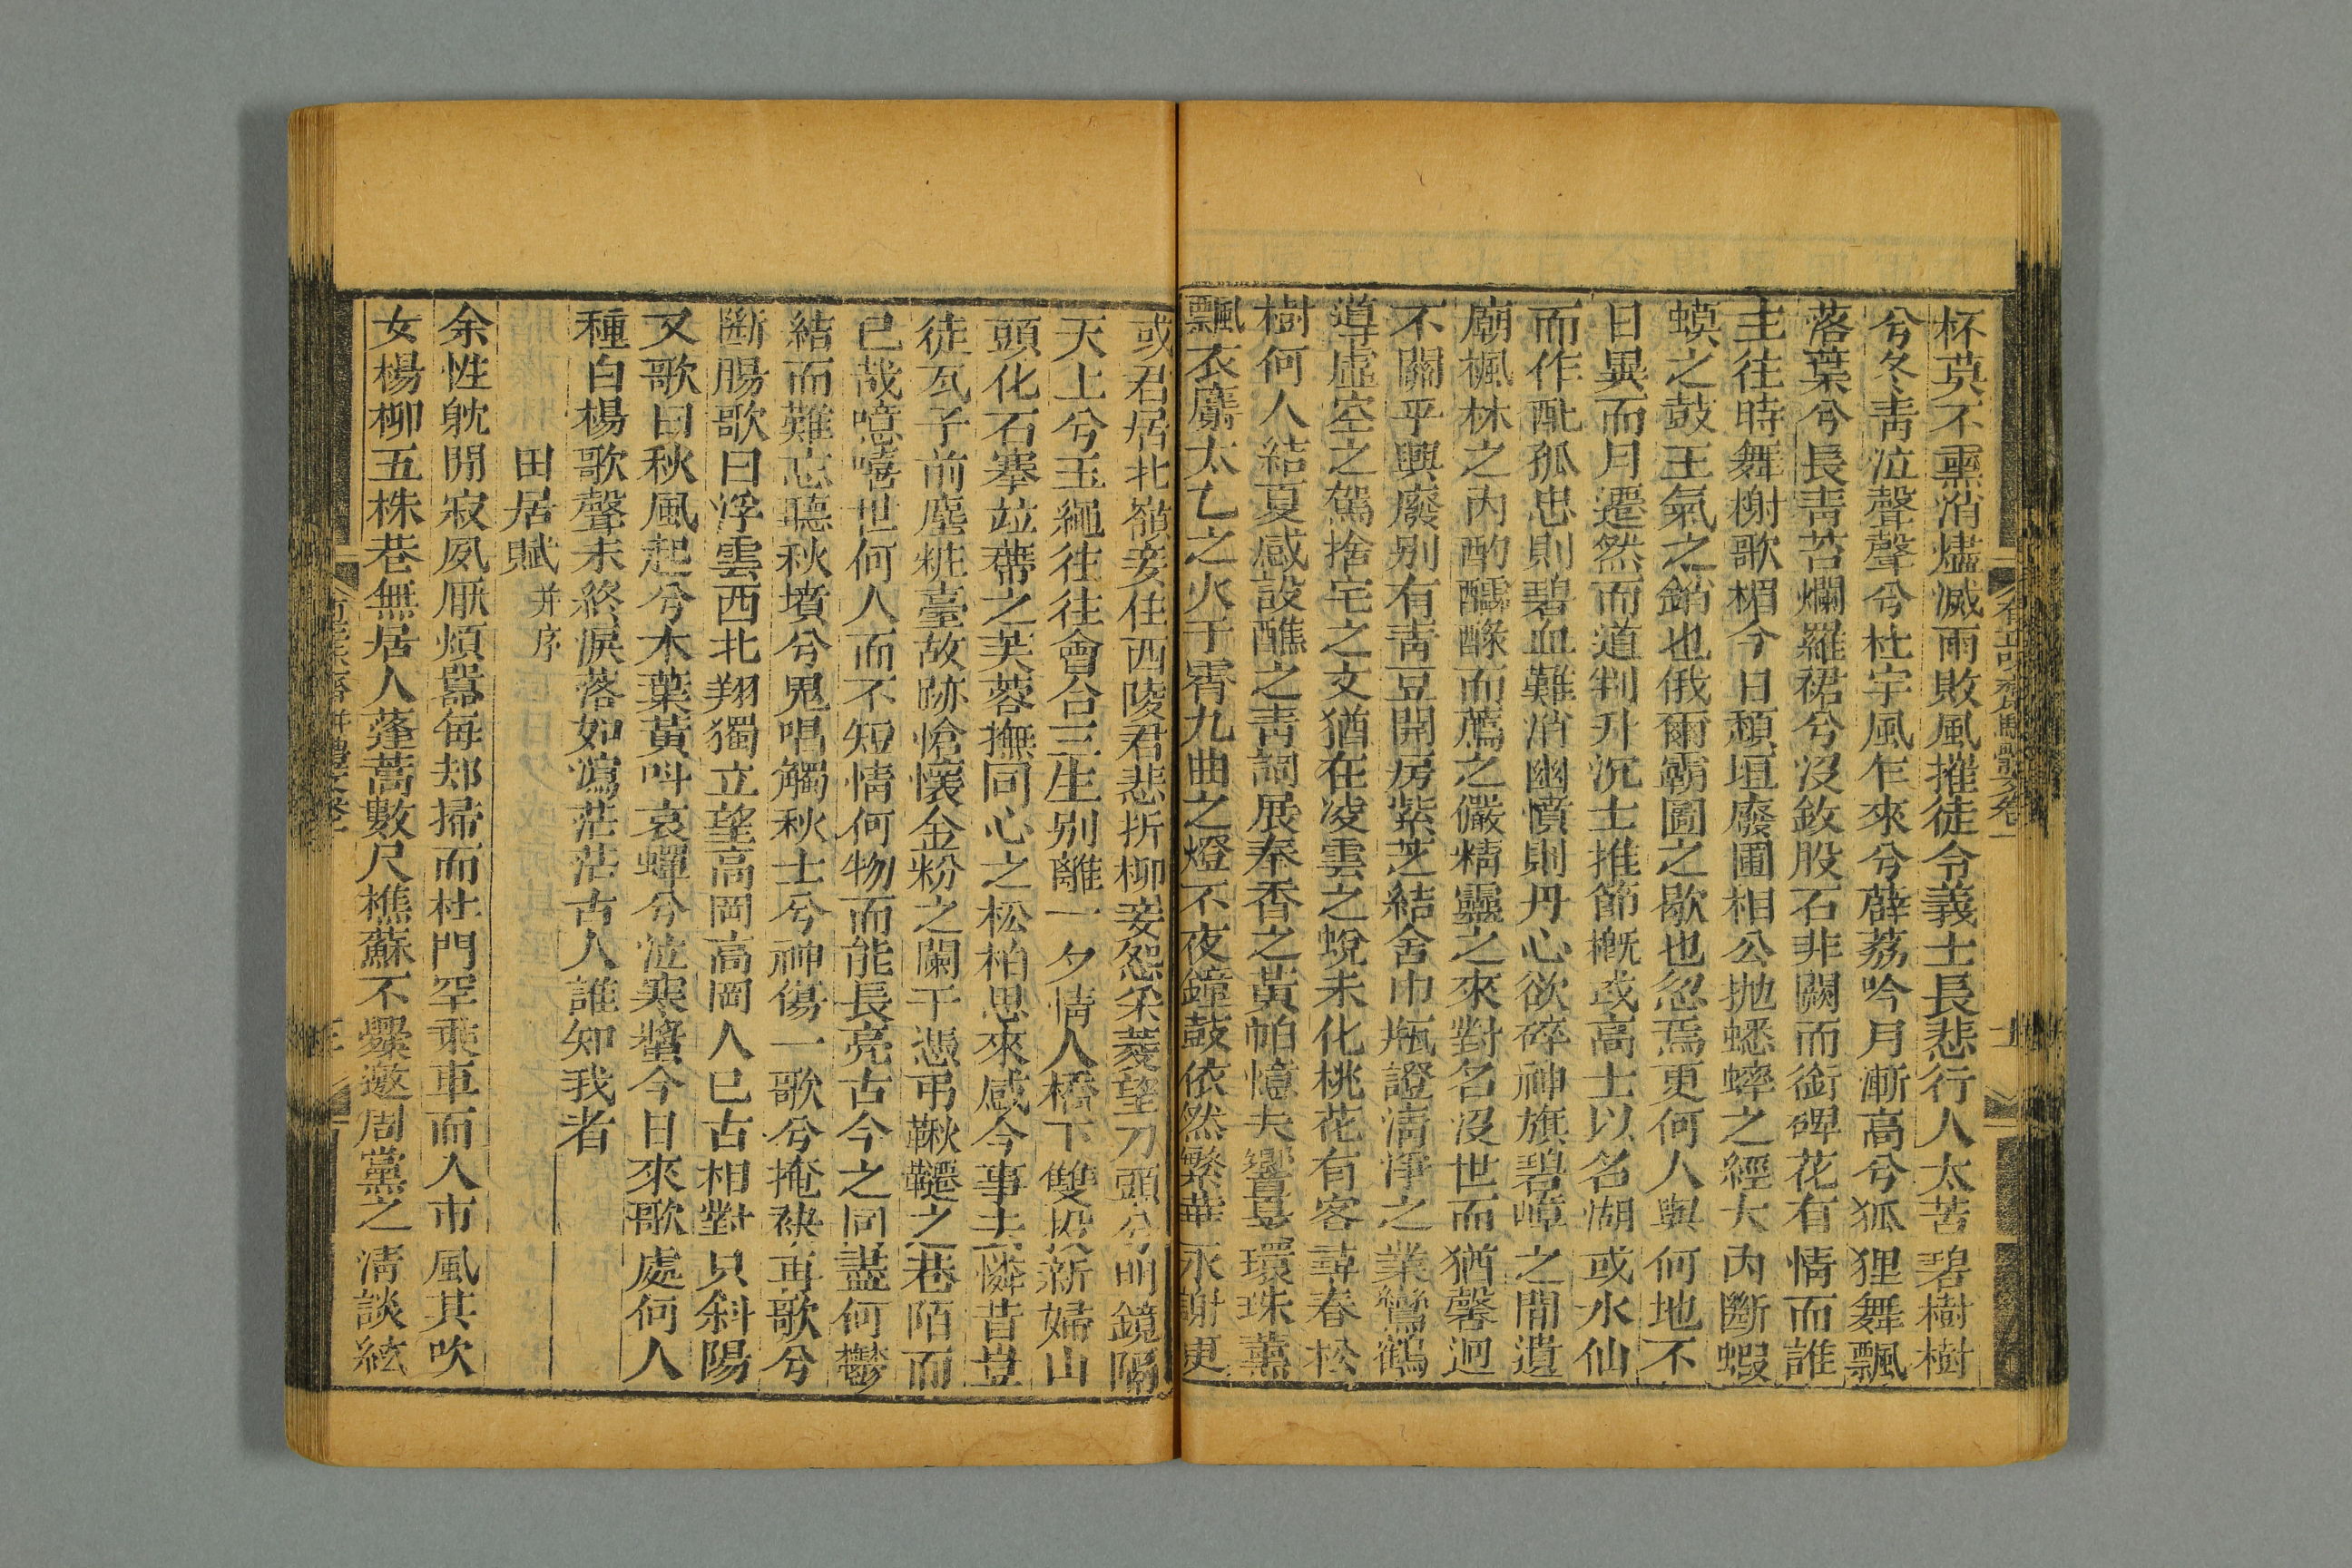 杯莫不熏消爐滅雨敗風摧徒令義士長悲行人太苦碧樹樹
兮冬青泣聲聲兮杜宇風乍來兮薜荔吟月漸高兮狐狸舞飄
落葉兮長青苔爛羅裙兮沒釵股石非闕而銜碑花有情而誰
主往時舞榭歌楣今日頹垣廢圃相公拋蟋蟀之經大內斷蝦
蟆之鼓王氣之銷也俄爾霸圖之歇也忽焉更何人與何地不
日異而月遷然而道判升沉士推節槪或高士以名湖或水仙
而作酏孤忠則碧血難消幽憤則丹心欲碎神旗碧嶂之閒遺
廟楓林之內酌醽醁而薦之儼精靈之來對名沒世而猶馨迥
不關乎興廢别有青豆開房紫芝結舍巾甁證清淨之業鸞鶴
導虛空之駕捨宅之文猶在凌雲之蛻未化桃花有客尋春松
樹何人結夏感設醮之青詞展奉香之黃帕憶夫響屧環珠薰
飄衣麝太乙之火于霄九曲之燈不夜鐘鼓依然繁華永謝更
或君居北嶺妾住西陵君悲折柳妾怨采菱望刀頭兮明鏡隔
天上兮玉繩往往會合三生别離一夕情人橋下雙投新婦山
頭化石搴竝蒂之芙蓉撫同心之松柏思來感今事去憐昔豈
徒瓦子前塵粧臺故跡愴懷金粉之闌干憑弔鞦韆之巷陌而
已哉噫嘻世何人而不短情何物而能長亮古今之同盡何鬱
結而難忘聽秋墳兮鬼唱觸秋士兮神傷一歌兮掩袂再歌兮
斷腸歌曰浮雲西北翔獨立望高岡高岡人已古相對只斜陽
又歌曰秋風起兮木葉黃呌哀蟬兮泣寒螿今日來歌處何人
種白楊歌聲未終淚落如瀉茫茫古人誰知我者
田居賦并序
余性躭閒寂夙厭煩囂每却掃而杜門罕乘車而入市風其吹
女楊柳五株巷無居人蓬蒿數尺樵蘇不爨邀周黨之清談絃